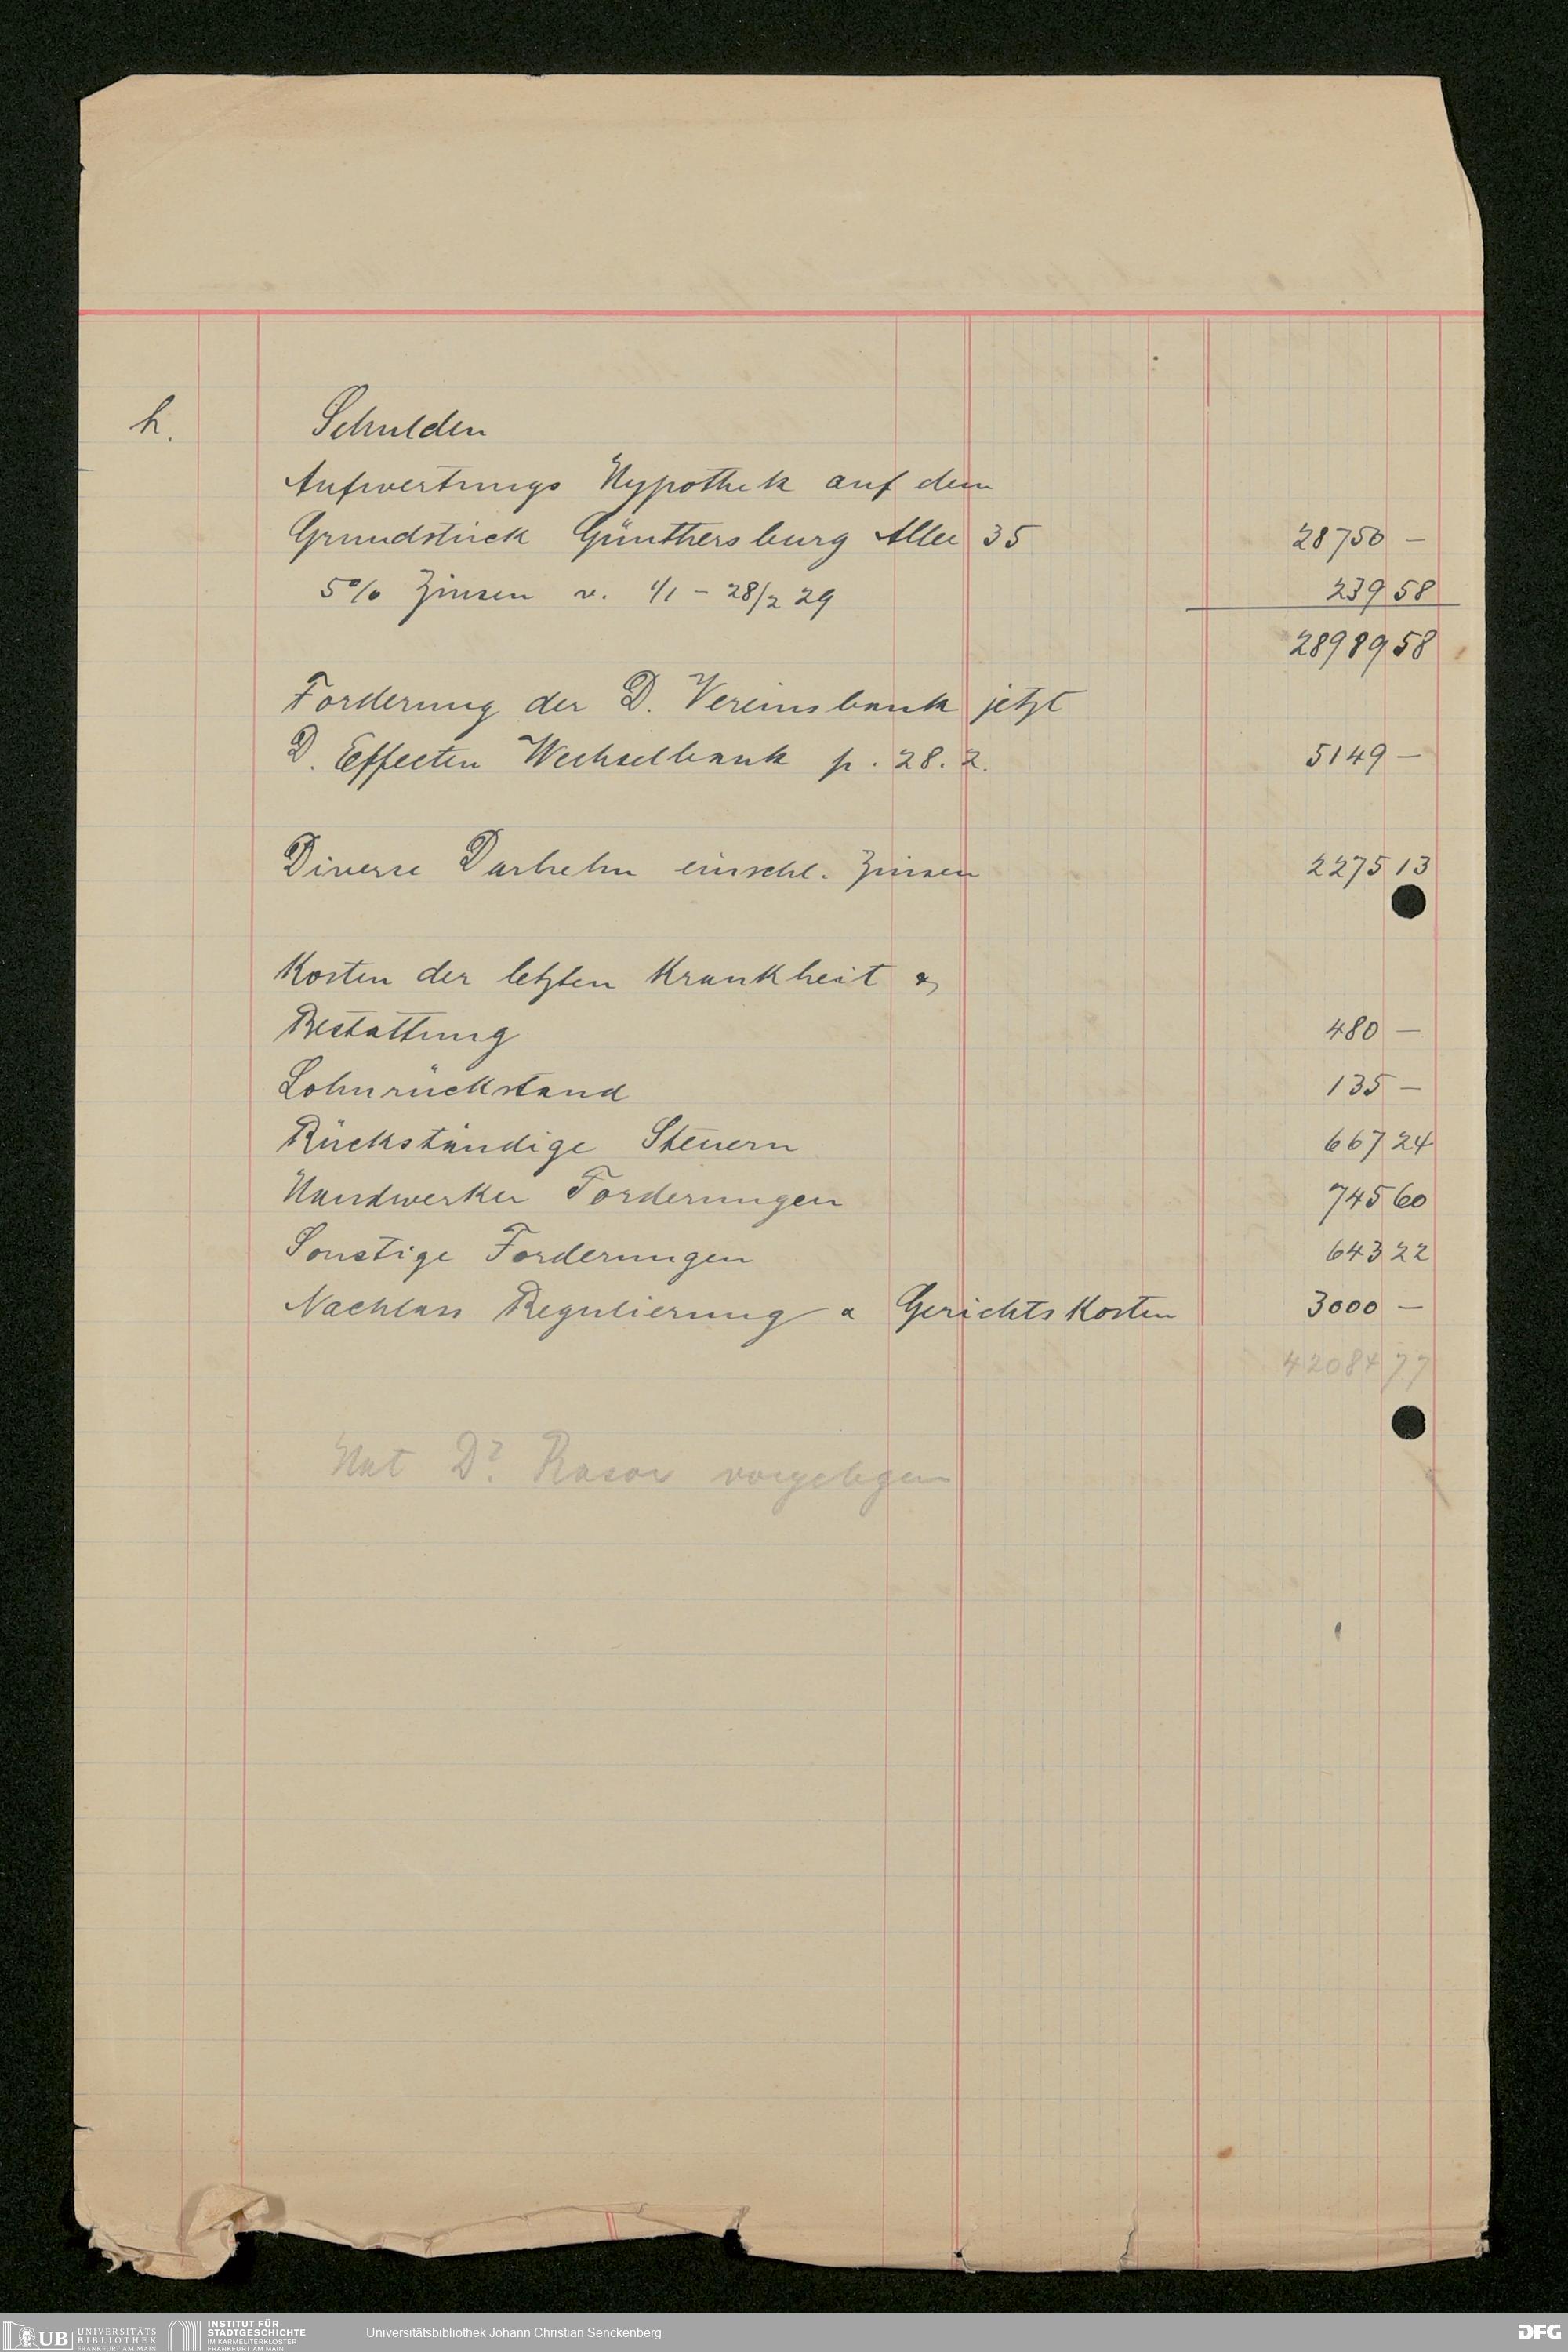 h. Schulden
Aufwertungs Hypothek auf dem
Grundstück Günthersburg Allee 35 28750 —
5% Zinsen v. 1/1 - 28/2 29 239 58
28989 58
Forderung der D. Vereinsbank jetzt
D. Effecten Wechselbank p. 28. 2. 5149 —
Diverse Darhehn einschl. Zinsen 2275 13
Kosten der letzten Krankheit &
Bestattung 480 —
Lohnrückstand 135 —
Rückständige Steuern 667 24
Handwerker Forderungen 745 60
Sonstige Forderungen 643 22
Nachlass Regulierung & Gerichtskosten 3000 —
42084 77
Hat Dr. Rasor vorgelegen
UB UNIVERSITÄTS
BIBLIOTHEK
FRANKFURT AM MAIN
INSTITUT FÜR
STADTGESCHICHTE
IM KARMELITERKLOSTER
FRANKFURT AM MAIN
Universitätsbibliothek Johann Christian Senckenberg
DFG